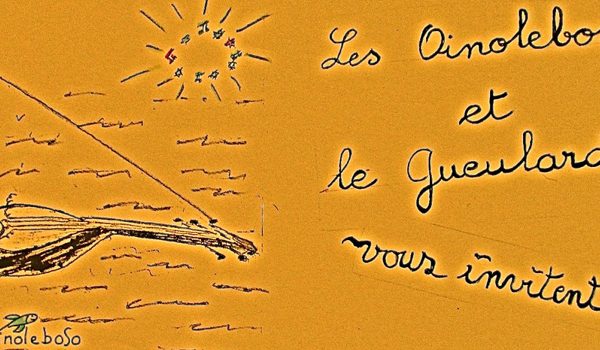 Les Oinolebo
et
le Gueulard
vous invitent
noleboso